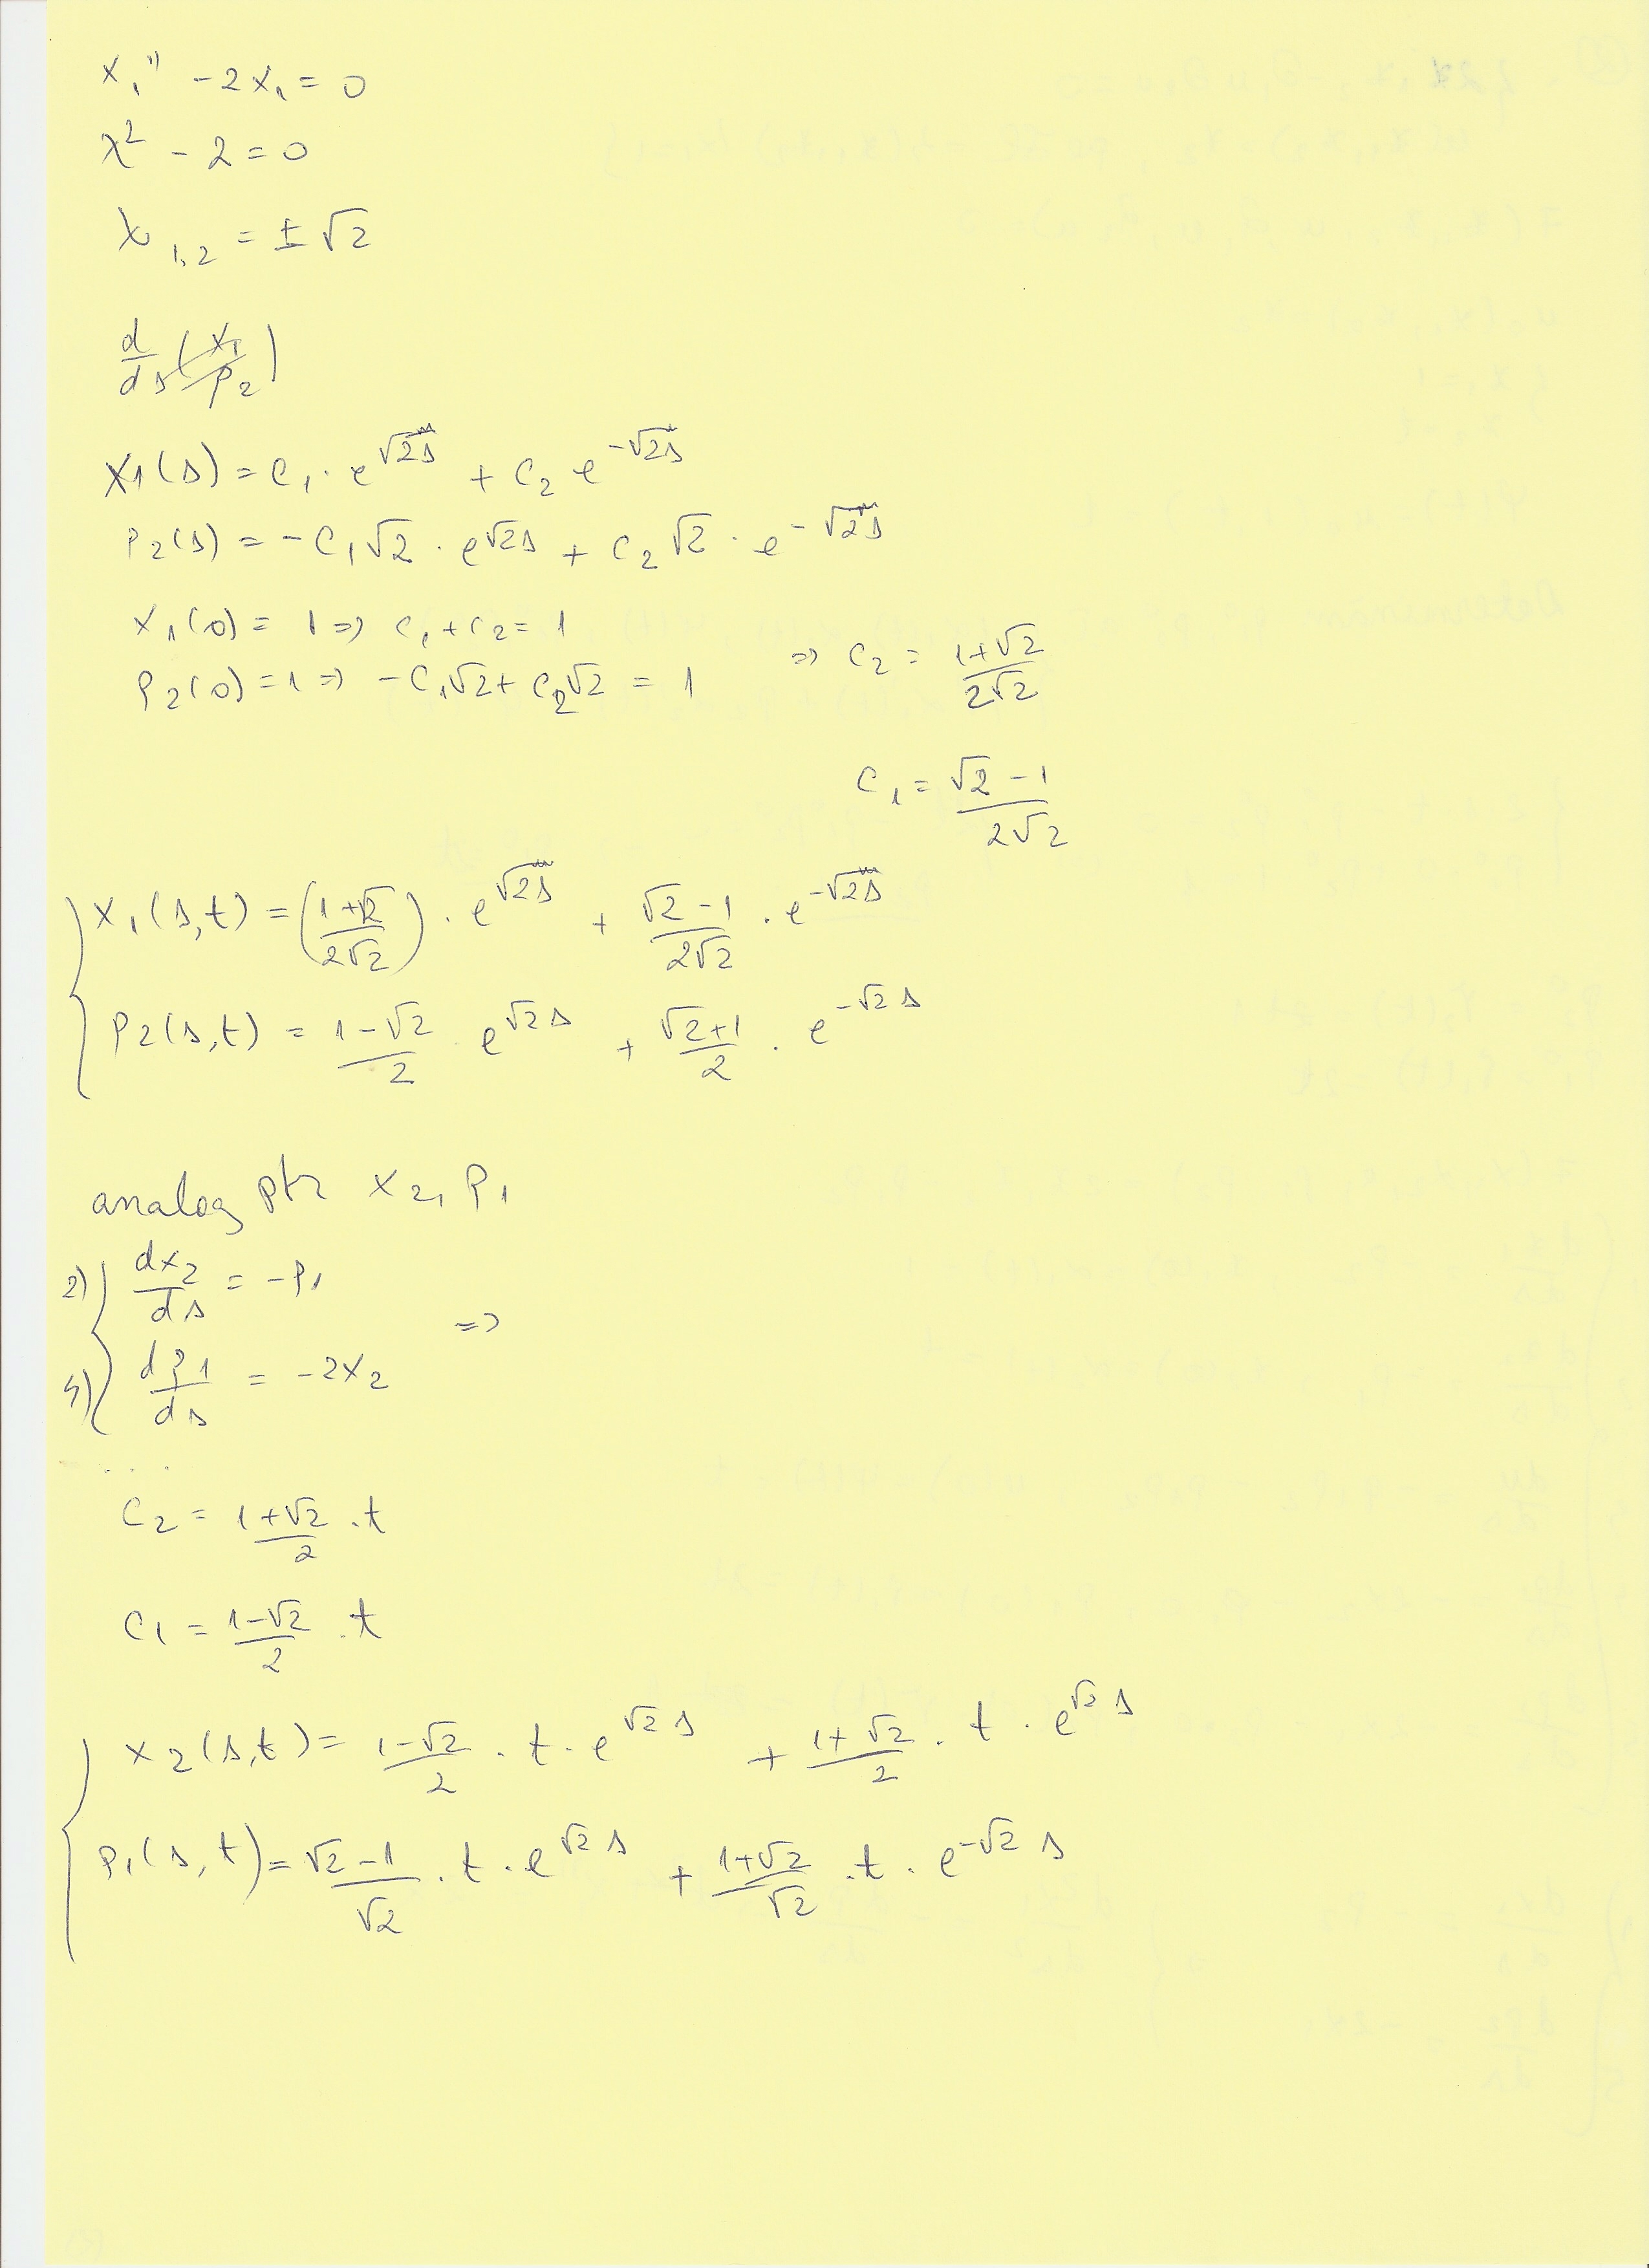 x₁'' - 2x₁ = 0
λ² - 2 = 0
λ₁,₂ = ± √2
d/ds (x₁/p₂)
x₁(s) = c₁ · e^{√2s} + c₂ e^{-√2s}
p₂(s) = -c₁√2 · e^{√2s} + c₂√2 · e^{-√2s}
x₁(0) = 1 => c₁ + c₂ = 1
p₂(0) = 1 => -c₁√2 + c₂√2 = 1 => c₂ = (1+√2)/(2√2)
c₁ = (√2 - 1)/(2√2)
x₁(s,t) = ((1+√2)/(2√2)) · e^{√2s} + (√2 - 1)/(2√2) · e^{-√2s}
p₂(s,t) = (1-√2)/2 · e^{√2s} + (√2+1)/2 · e^{-√2s}
analog ptr x₂, p₁
2) dx₂/ds = -p₁
=>
4) dp₁/ds = -2x₂
...
c₂ = (1+√2)/2 · t
c₁ = (1-√2)/2 · t
x₂(s,t) = (1-√2)/2 · t · e^{√2 s} + (1+√2)/2 · t · e^{√2 s}
p₁(s,t) = (√2 - 1)/√2 · t · e^{√2 s} + (1+√2)/√2 · t · e^{-√2 s}